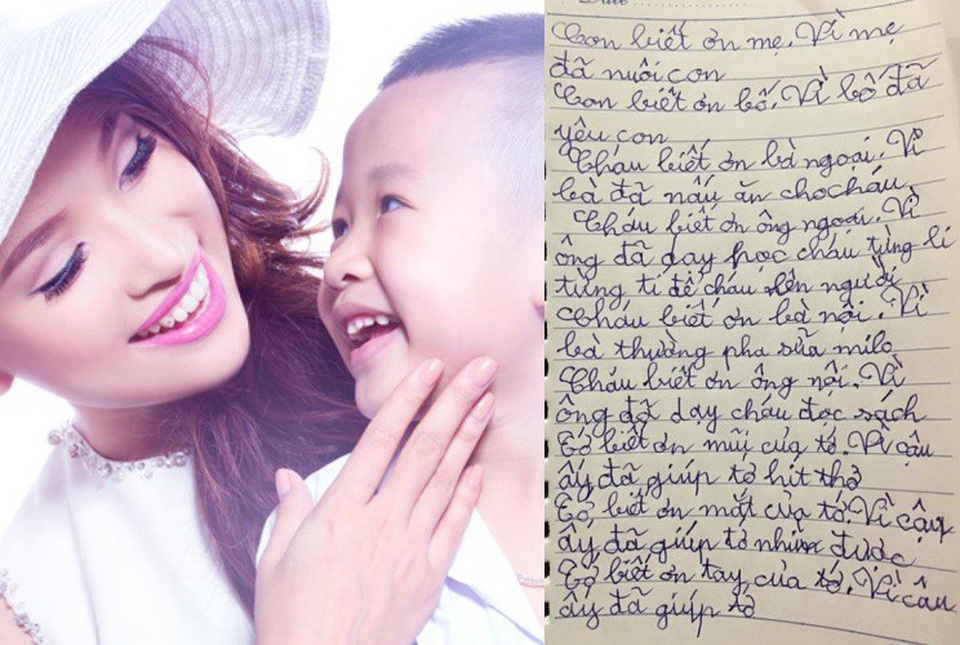 Date
Con biết ơn mẹ. Vì mẹ
đã nuôi con
Con biết ơn bố. Vì bố đã
yêu con
Cháu biết ơn bà ngoại. Vì
bà đã nấu ăn cho cháu
Cháu biết ơn ông ngoại. Vì
ông đã dạy học cháu từng li
từng tí để cháu lên người
Cháu biết ơn bà nội. Vì
bà thường pha sữa milo
Cháu biết ơn ông nội. Vì
ông đã dạy cháu đọc sách
Tớ biết ơn mũi của tớ. Vì cậu
ấy đã giúp tớ hít thở
Tớ biết ơn mắt của tớ. Vì cậu
ấy đã giúp tớ nhìn được
Tớ biết ơn tay của tớ. Vì câu
ấy đã giúp tớ